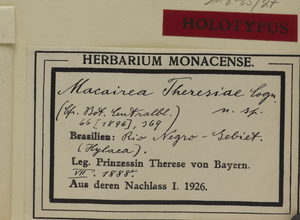 HOLOTYPUS
HERBARIUM MONACENSE.
Macairea Theresiae Cogn.
(Cf. Bot. Centralbl.) n. sp.
66 [1896], 369
Brasilien: Rio Negro-Gebiet.
(Hylaea).
Leg. Prinzessin Therese von Bayern.
VII. 1888.
Aus deren Nachlass I. 1926.